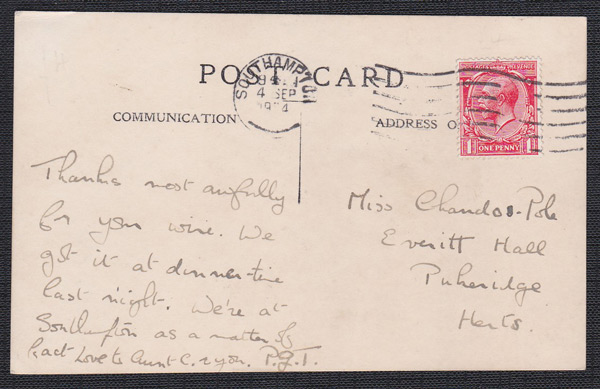 POST CARD
SOUTHAMPTON
4 SEP
COMMUNICATION
ADDRESS O
ONE PENNY
Thanks most awfully
for your wire. We
got it at dinner-time
last night. We're at
Southampton as a matter of
fact Love to Aunt C. & you. P.G.T.
Miss Chandos-Pole
Everitt Hall
Puckeridge
Herts.